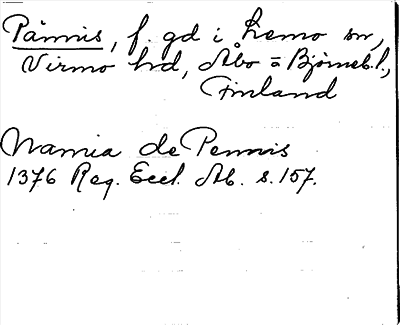 Pännis, f. gd i Lemo sn,
Virmo hd, Åbo = Björneb. l.,
Finland
Namia de Pennis
1376 Reg. Eccl. Ab. s. 157.